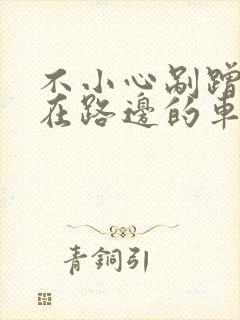 不小心剐蹭
在路邊的車
青銅引